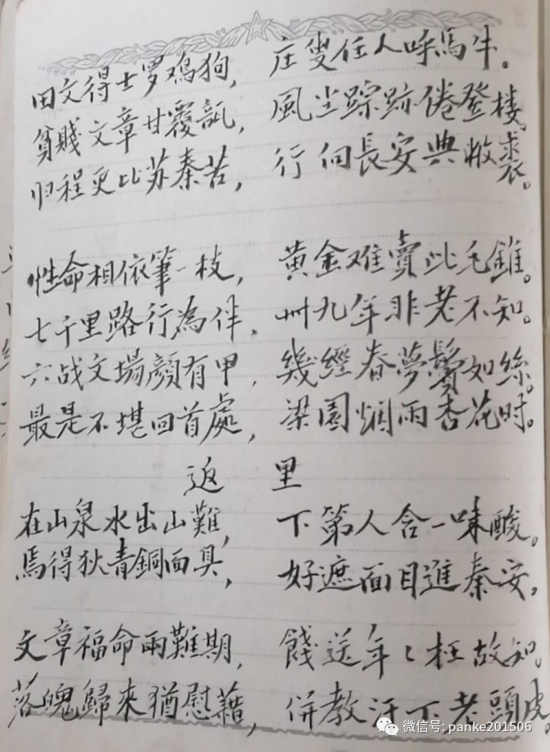 田文得士罗鸡狗，庄叟任人呼馬牛。
貧賤文章甘覆瓿，風尘踪跡倦登楼。
归程更比苏秦苦，行向長安典敝裘。
性命相依筆一枝，黄金难賣此毛錐。
七千里路行為伴，卅九年非老不知。
六战文塲顔有甲，幾經春夢鬓如絲。
最是不堪回首處，梁園烟雨杏花时。
返里
在山泉水出山難，下第人含一味酸。
焉得狄青銅面具，好遮面目進秦安。
文章福命兩難期，餞送年〻枉故知。
落魄歸來猶慰藉，併教汗下老頭皮。
微信号: panke201506